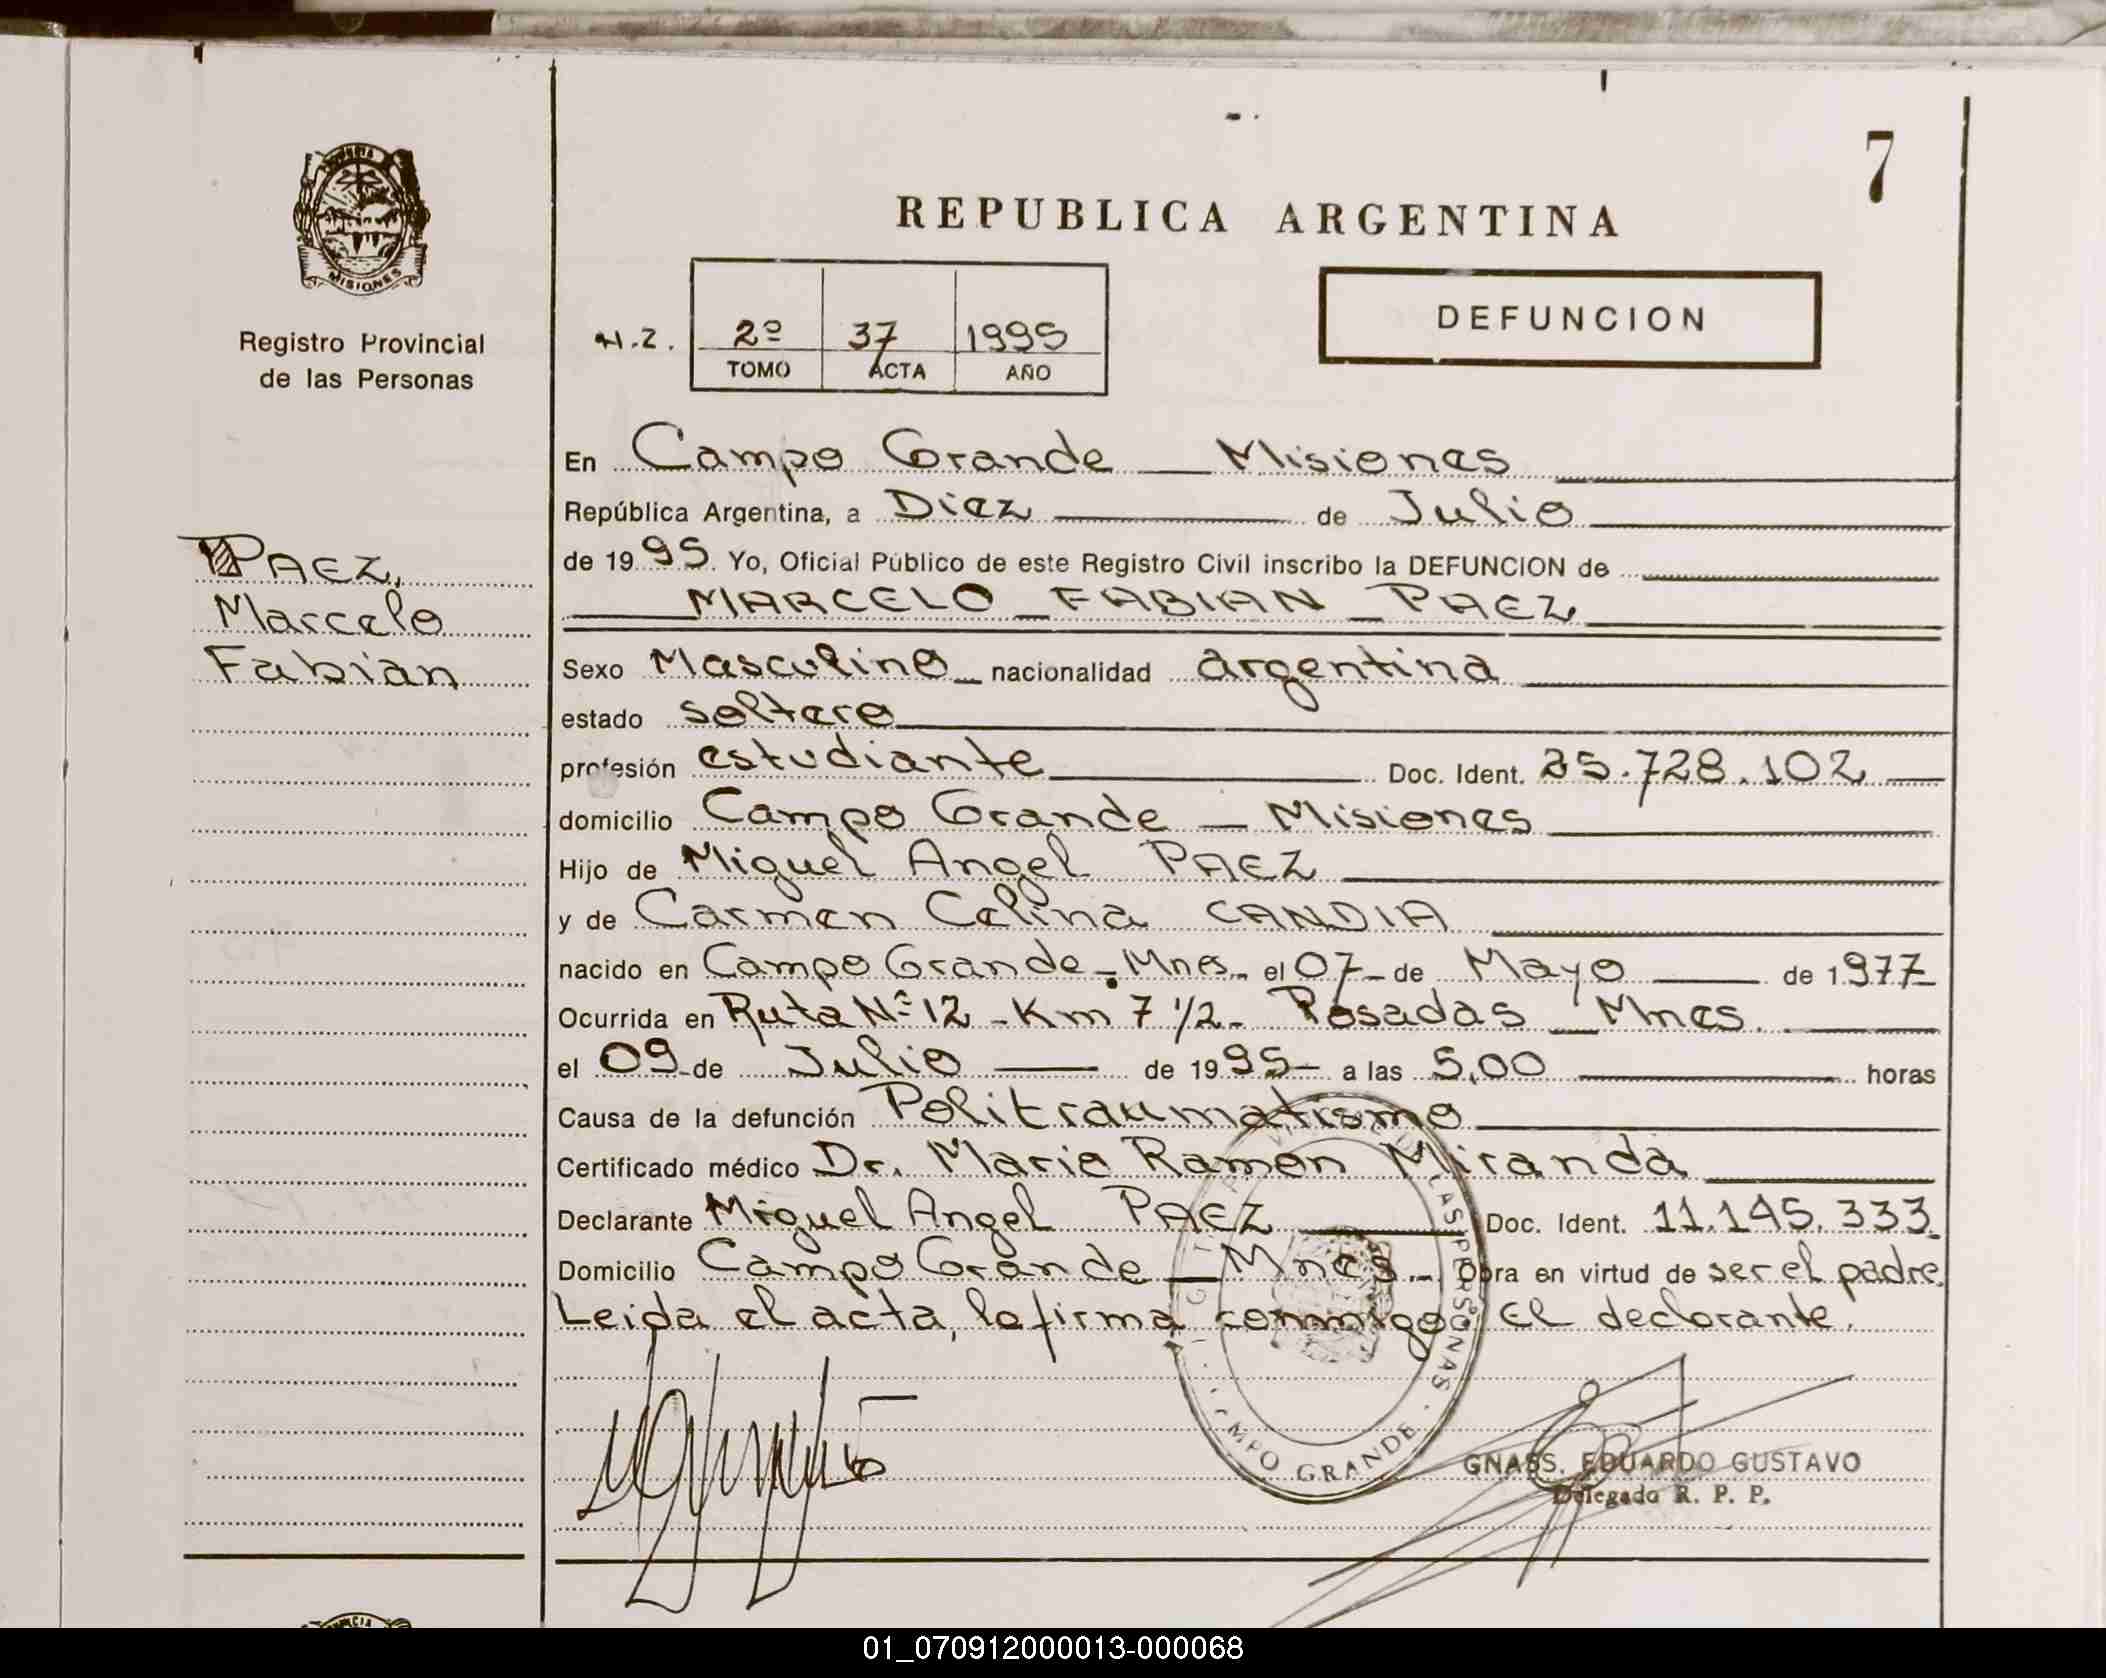 7
REPUBLICA ARGENTINA
DEFUNCION
2º 37 1995
TOMO ACTA AÑO
MISIONES
Registro Provincial
de las Personas
PAEZ,
Marcelo
Fabian
En Campo Grande — Misiones
República Argentina, a Diez de Julio
de 1995 Yo, Oficial Público de este Registro Civil inscribo la DEFUNCION de
MARCELO – FABIAN – PAEZ
Sexo Masculino nacionalidad argentina
estado soltero
profesión estudiante Doc. Ident. 25.728.102
domicilio Campo Grande – Misiones
Hijo de Miguel Angel PAEZ
y de Carmen Celina CANDIA
nacido en Campo Grande - Mnes. el 07 de Mayo de 1977
Ocurrida en Ruta Nº 12 - Km 7 1/2 - Posadas – Mnes.
el 09 de Julio de 1995 a las 5,00 horas
Causa de la defunción Politraumatismo
Certificado médico Dr. Mario Ramon Miranda
Declarante Miguel Angel PAEZ Doc. Ident. 11.145.333
Domicilio Campo Grande – Mnes. Obra en virtud de ser el padre.
Leida el acta, la firma conmigo el declarante.
LAS PERSONAS
GRANDE
GNASS. EDUARDO GUSTAVO
Delegado R. P. P.
01_070912000013-000068